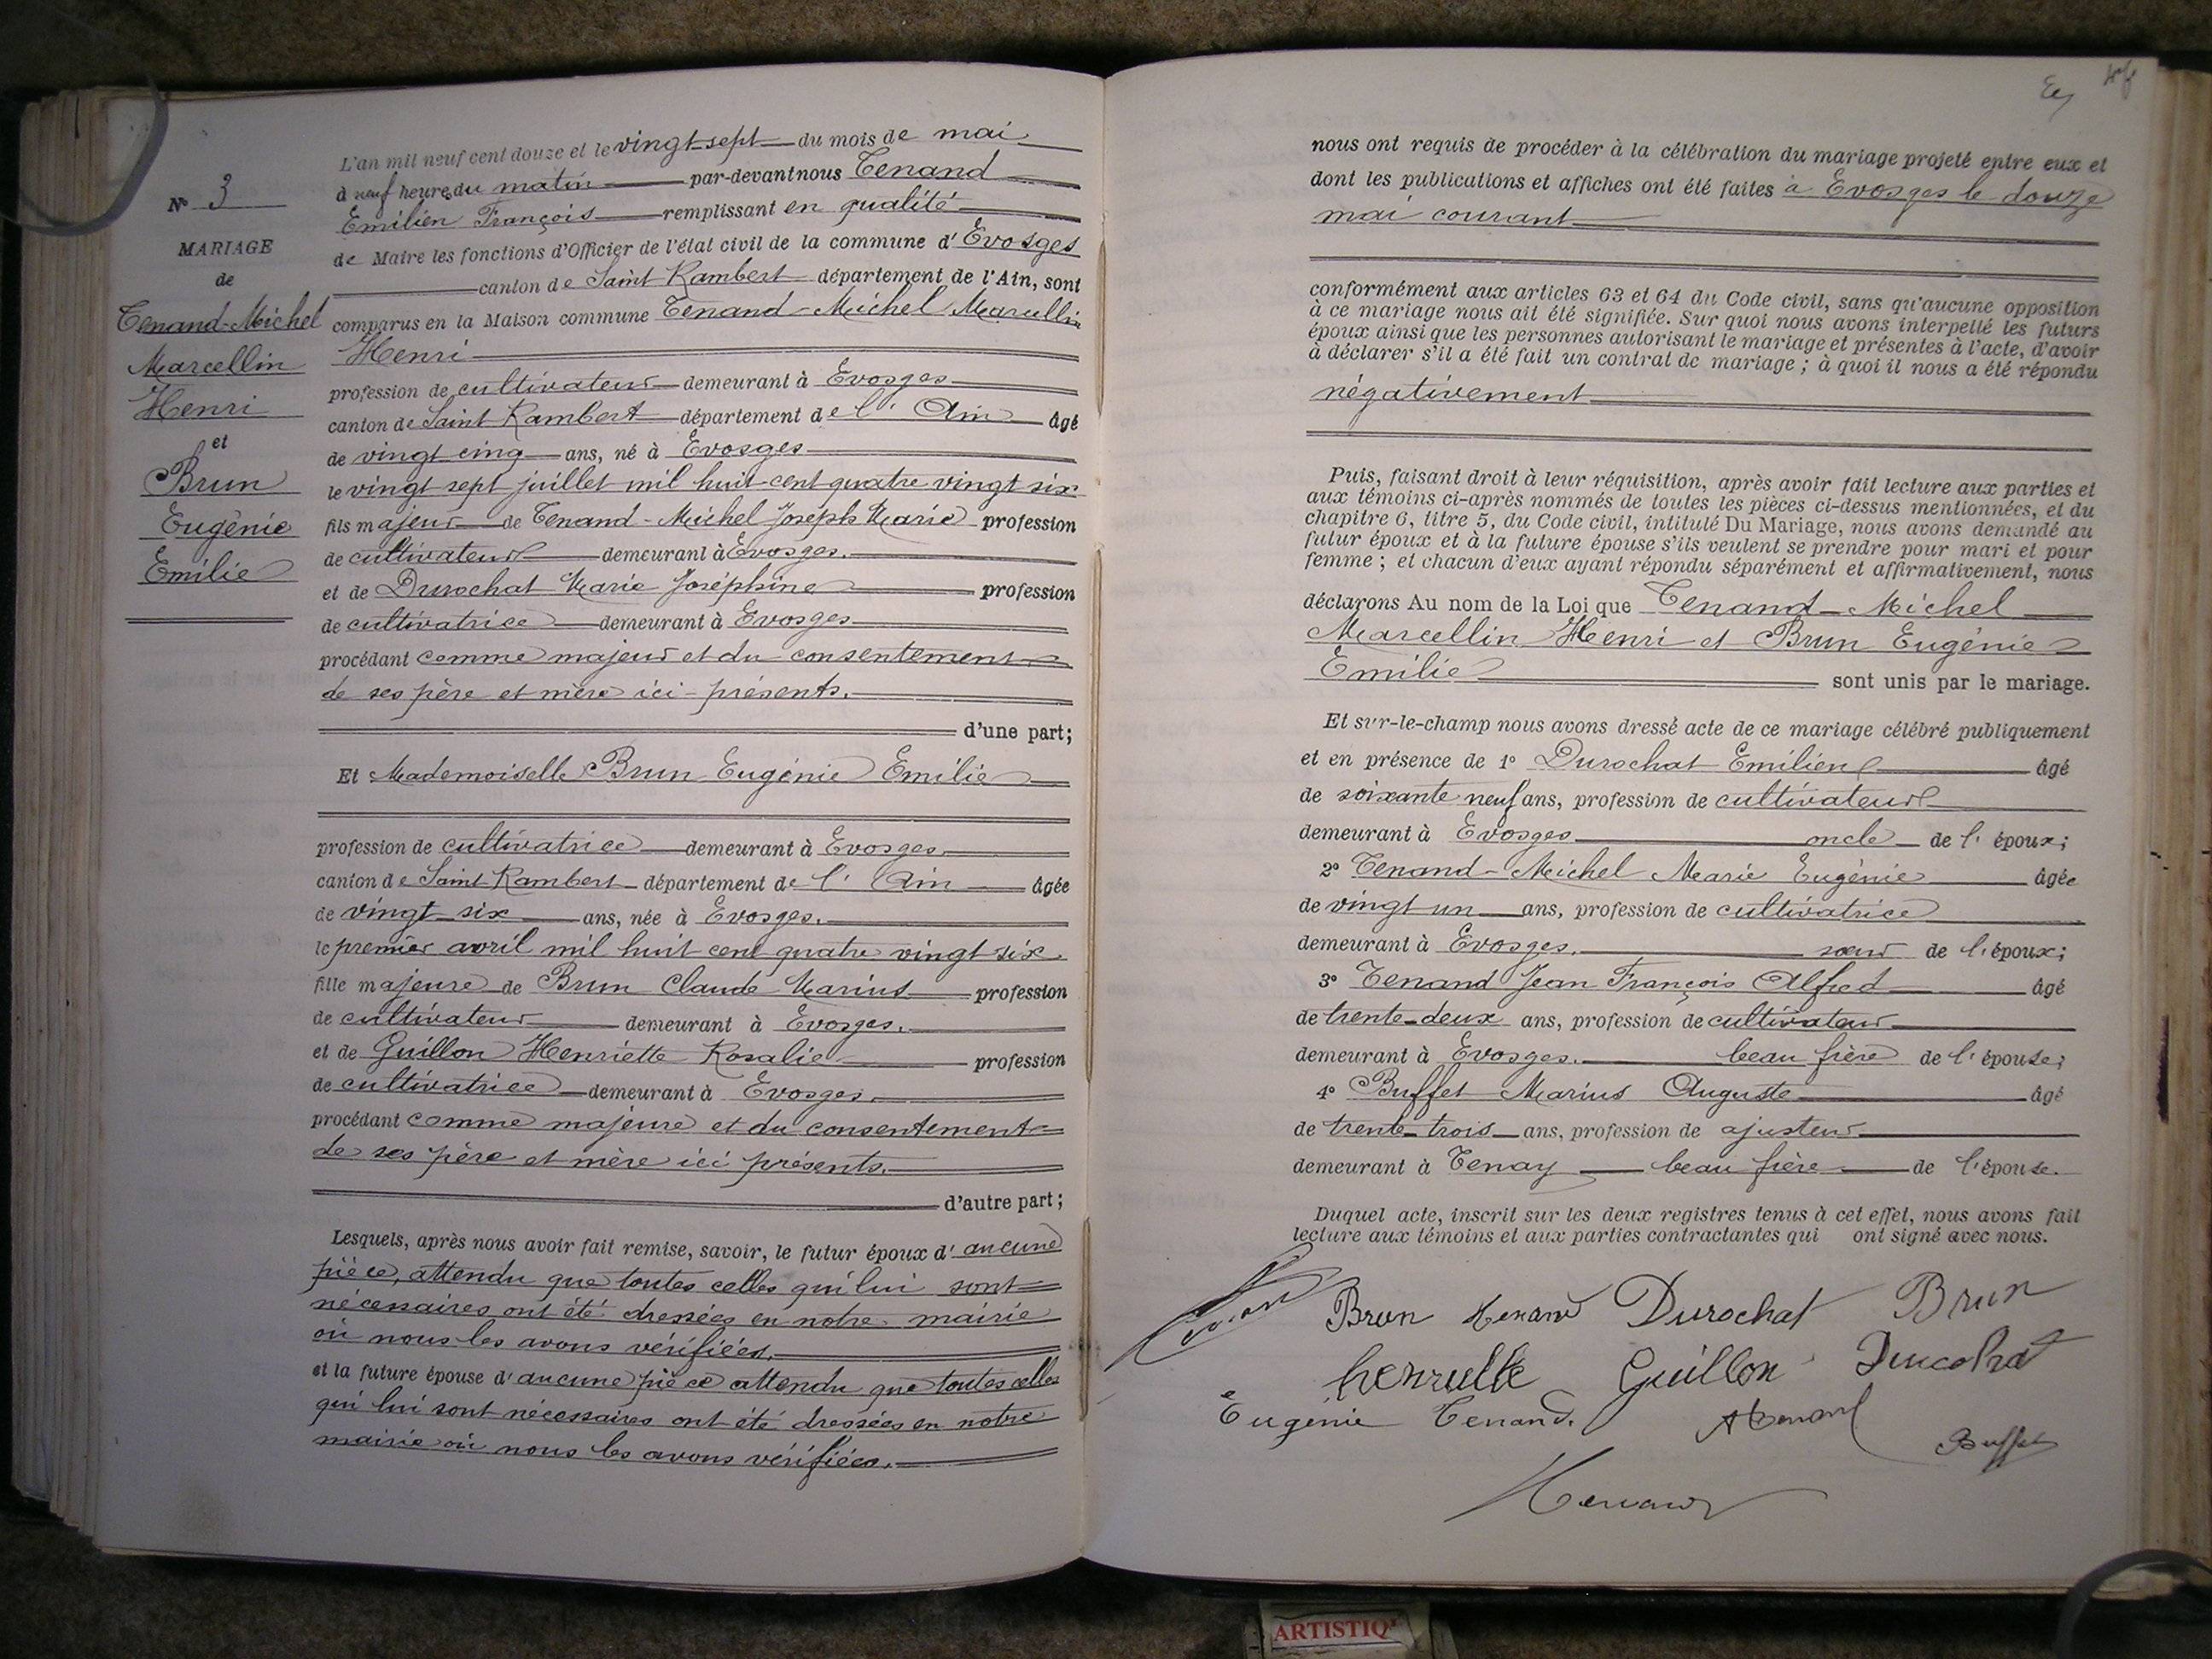 N° 3
MARIAGE
de
Tenand-Michel
Marcellin
Henri
et
Brun
Eugénie
Emilie
L'an mil neuf cent douze et le vingt-sept du mois de mai
à neuf heures du matin par-devant nous Tenand
Emilien François remplissant en qualité
de Maire les fonctions d'Officier de l'état civil de la commune d'Evosges
canton de Saint Rambert département de l'Ain, sont
comparus en la Maison commune Tenand-Michel Marcellin
Henri
profession de cultivateur demeurant à Evosges
canton de Saint Rambert département de l'Ain âgé
de vingt cinq ans, né à Evosges
le vingt sept juillet mil huit cent quatre vingt six
fils majeur de Tenand-Michel Joseph Marie profession
de cultivateur demeurant à Evosges.
et de Durochat Marie Joséphine profession
de cultivatrice demeurant à Evosges
procédant comme majeur et du consentement
de ses père et mère ici présents.
d'une part;
Et Mademoiselle Brun Eugénie Emilie
profession de cultivatrice demeurant à Evosges
canton de Saint Rambert département de l'Ain âgée
de vingt six ans, née à Evosges.
le premier avril mil huit cent quatre vingt six.
fille majeure de Brun Claude Marius profession
de cultivateur demeurant à Evosges.
et de Guillon Henriette Rosalie profession
de cultivatrice demeurant à Evosges.
procédant comme majeure et du consentement
de ses père et mère ici présents.
d'autre part;
Lesquels, après nous avoir fait remise, savoir, le futur époux d'aucune
pièce, attendu que toutes celles qui lui sont
nécessaires ont été dressées en notre mairie
où nous les avons vérifiées.
et la future épouse d'aucune pièce attendu que toutes celles
qui lui sont nécessaires ont été dressées en notre
mairie où nous les avons vérifiées.
nous ont requis de procéder à la célébration du mariage projeté entre eux et
dont les publications et affiches ont été faites à Evosges le douze
mai courant
conformément aux articles 63 et 64 du Code civil, sans qu'aucune opposition
à ce mariage nous ait été signifiée. Sur quoi nous avons interpellé les futurs
époux ainsi que les personnes autorisant le mariage et présentes à l'acte, d'avoir
à déclarer s'il a été fait un contrat de mariage; à quoi il nous a été répondu
négativement
Puis, faisant droit à leur réquisition, après avoir fait lecture aux parties et
aux témoins ci-après nommés de toutes les pièces ci-dessus mentionnées, et du
chapitre 6, titre 5, du Code civil, intitulé Du Mariage, nous avons demandé au
futur époux et à la future épouse s'ils veulent se prendre pour mari et pour
femme; et chacun d'eux ayant répondu séparément et affirmativement, nous
déclarons Au nom de la Loi que Tenand-Michel
Marcellin Henri et Brun Eugénie
Emilie sont unis par le mariage.
Et sur-le-champ nous avons dressé acte de ce mariage célébré publiquement
et en présence de 1° Durochat Emilien âgé
de soixante neuf ans, profession de cultivateur
demeurant à Evosges oncle de l'époux;
2° Tenand-Michel Marie Eugénie âgée
de vingt un ans, profession de cultivatrice
demeurant à Evosges. sœur de l'époux;
3° Tenand Jean François Alfred âgé
de trente-deux ans, profession de cultivateur
demeurant à Evosges. beau frère de l'épouse;
4° Buffet Marius Auguste âgé
de trente-trois ans, profession de ajusteur
demeurant à Tenay beau frère de l'épouse.
Duquel acte, inscrit sur les deux registres tenus à cet effet, nous avons fait
lecture aux témoins et aux parties contractantes qui ont signé avec nous.
Brun Tenand Durochat Brun
henriette Guillon Durochat
Eugénie Tenand. A Tenand
Buffet
Tenand
ARTISTIQ